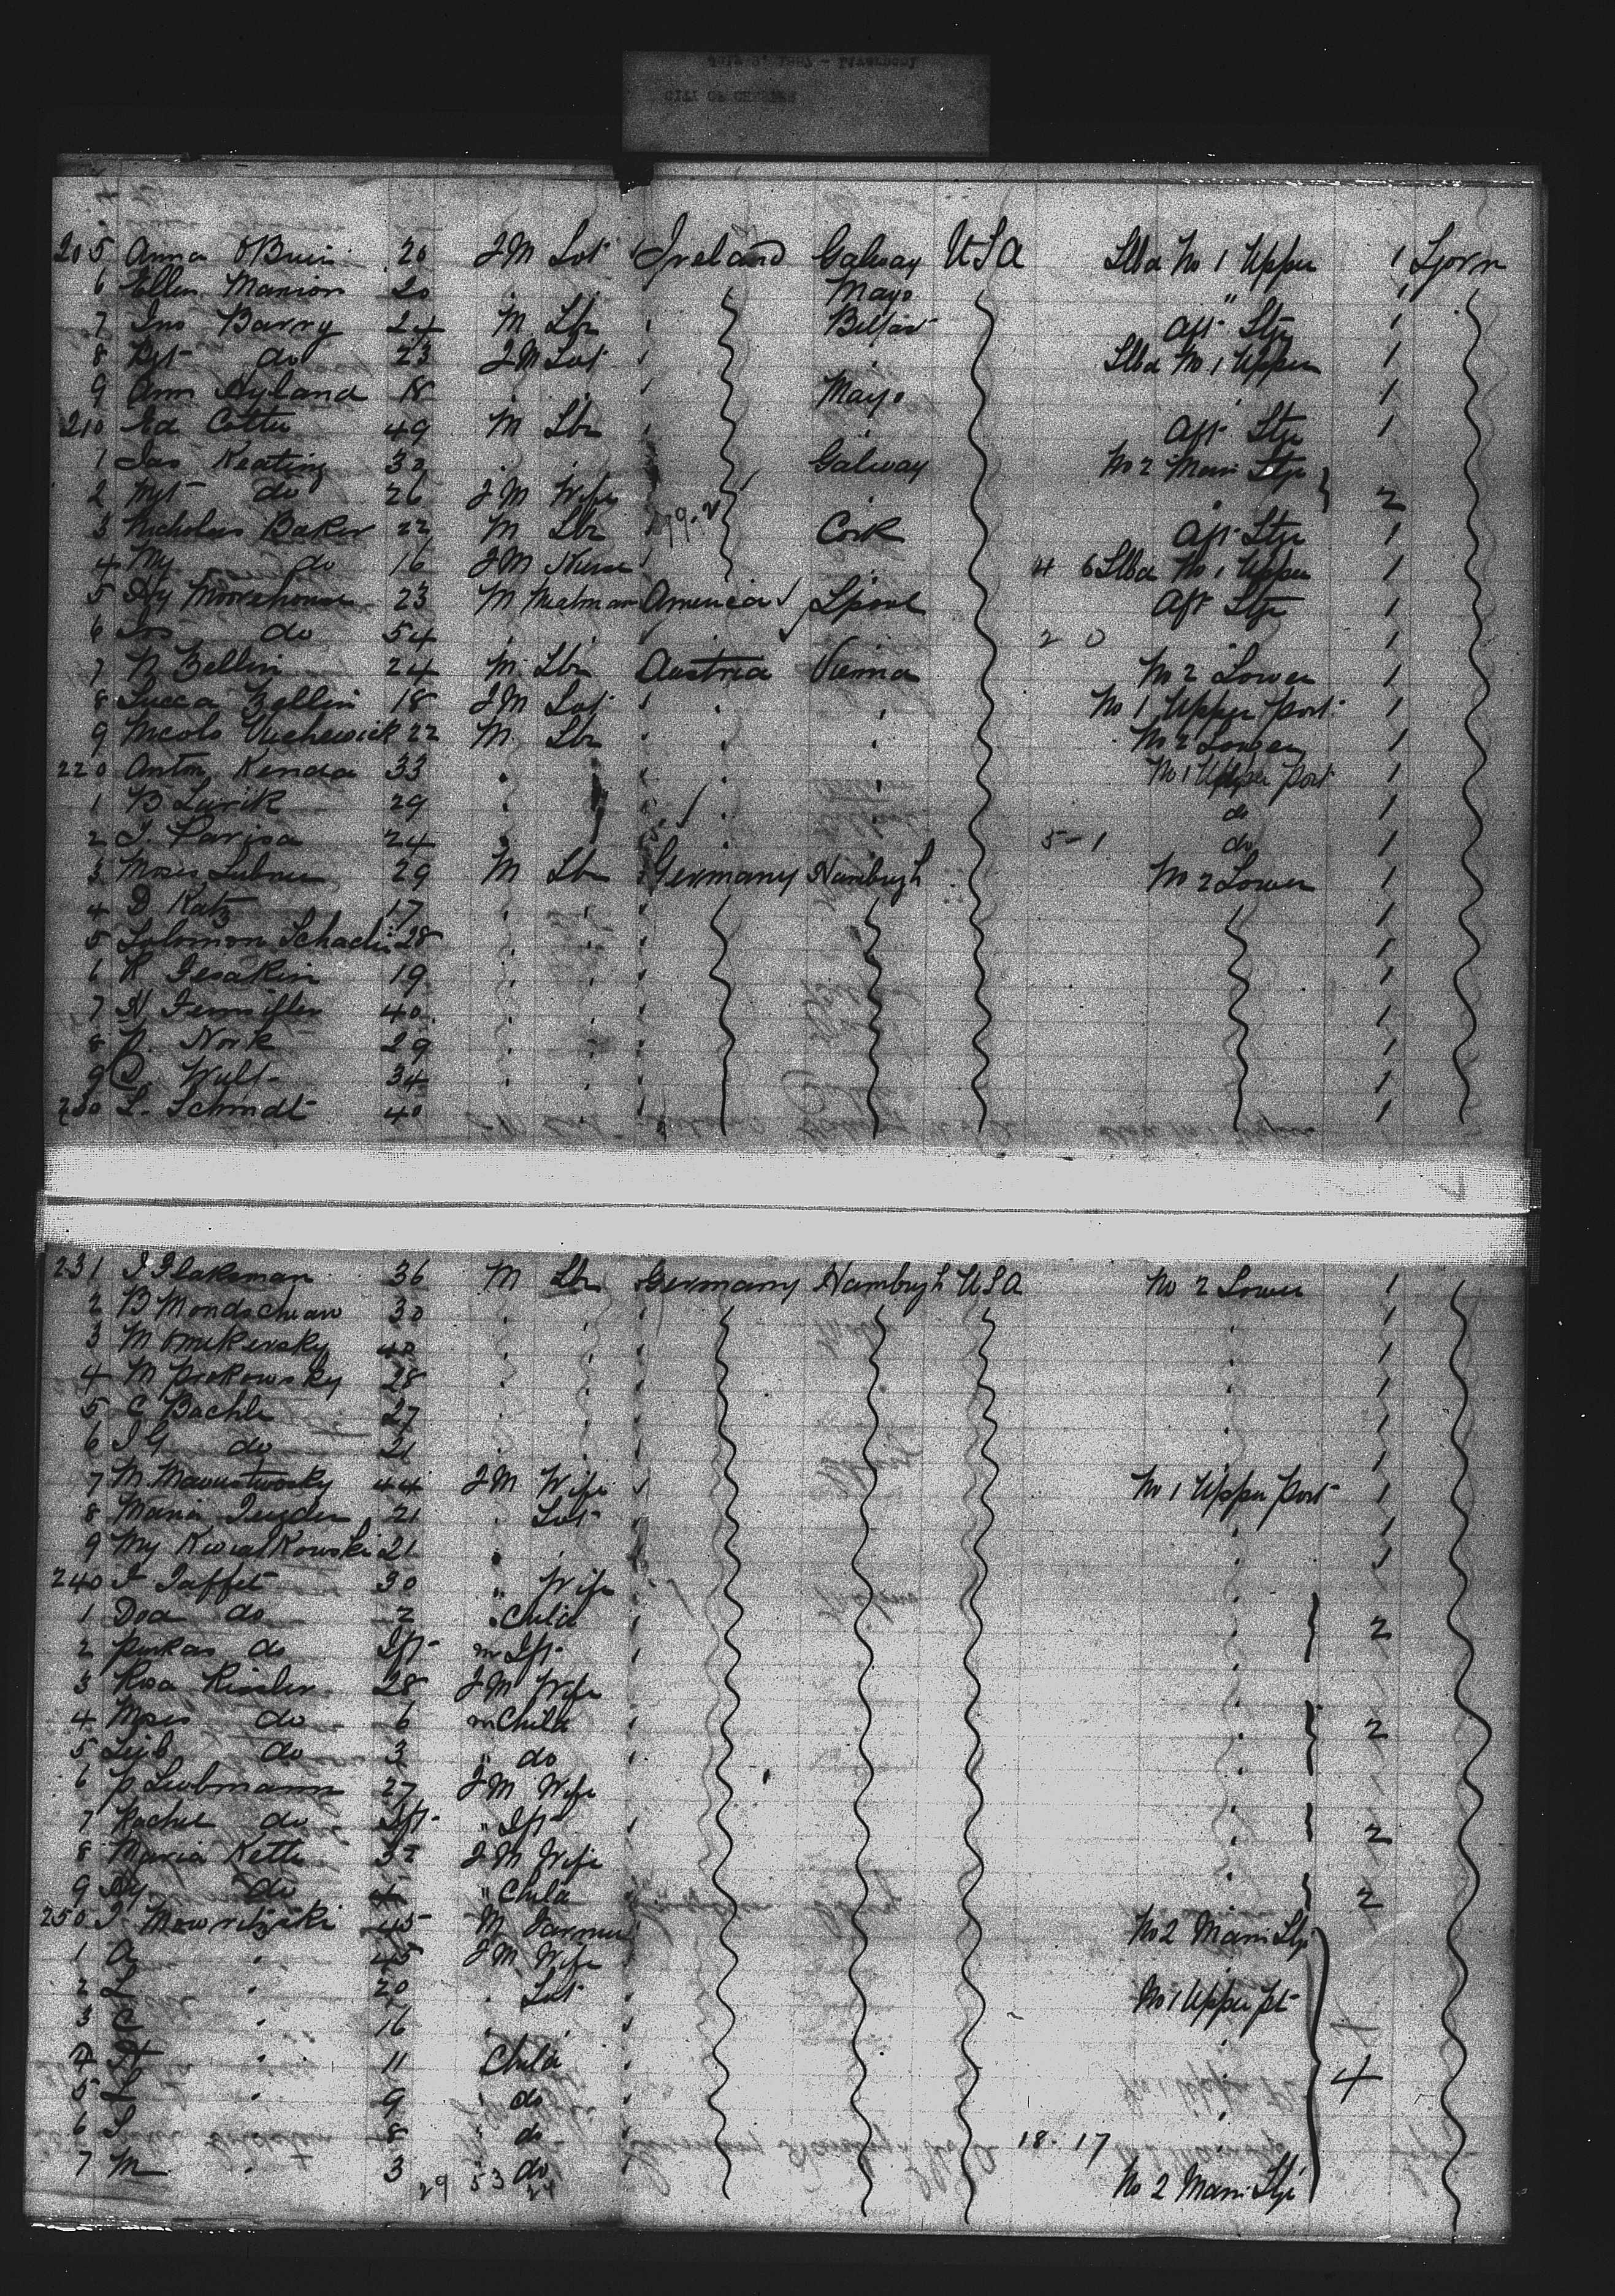 July 5, 1887 - Liverpool
CITY OF CHESTER
205 Anna OBrien 20 FM Lot Ireland Galway USA Stbd No 1 Upper 1 Ljorn
6 Ellen Manion 20 Mayo " 1
7 Jno Barry 24 M Lbr Belfast Aft Stge 1
8 Bgt do 23 FM Lot Stbd No 1 Upper 1
9 Ann Hyland 18 Mayo 1
210 Ed Cotter 49 M Lbr Aft Stge 1
1 Jas Keating 32 Galway No 2 Main Stge
2 Mgt do 26 FM Wife 2
3 Nicholas Baker 22 M Lbr Cork Aft Stge 1
4 My do 16 FM Nurse 4 6 Stbd No 1 Upper 1
5 Hy Moorehouse 23 M America Lpool Aft Stge 1
6 Jos do 54 2 0 1
7 N Bellin 24 M Lbr Austria Vienna No 2 Lower 1
8 Lucca Zellin 18 FM Lot No 1 Upper Port 1
9 Nicolo Vuchewick 22 M Lbr No 2 Lower 1
220 Anton Kenda 33 No 1 Upper Port 1
1 B Lurik 29 do 1
2 J. Parisa 24 5-1 do 1
3 Moses Lubner 29 M Lbr Germany Hambrgh No 2 Lower 1
4 D Katz 17 1
5 Solomon 28 1
6 R Gesakin 19 1
7 N 40 1
8 P. Nork 29 1
9 Wulf 34 1
230 L. Schmdt 40 1
231 J Flaksman 36 M Lbr Germany Hambrgh USA No 2 Lower 1
2 B Mondschein 30 1
3 M 40 1
4 M Prokowsky 28 1
5 G Bachle 27 1
6 J G do 21 1
7 M 44 FM Wife No 1 Upper Port 1
8 Maria 21 Lot 1
9 My Kwiatkowski 21 1
240 I Jaffet 30 " Wife
1 Dea do 2 Child 2
2 do Ift m Ift
3 Rosa Kissler 28 FM Wife
4 Moses do 6 m Child 2
5 Leib do 3 " do
6 P Liebmann 27 FM Wife
7 Rachel do Ift " Ift 2
8 Maria Kette 32 FM Wife
9 Hy do 4 " Child 2
250 J Mowritzski 45 M Farmer No 2 Main Stge
1 A " 45 FM Wife
2 L " 20 Lot No 1 Upper pt
3 C " 16
4 H " 11 Child 4
5 L " 9 " do
6 S 8 " do 18-17
7 M " 3 " do No 2 Main Stge
29 53 24